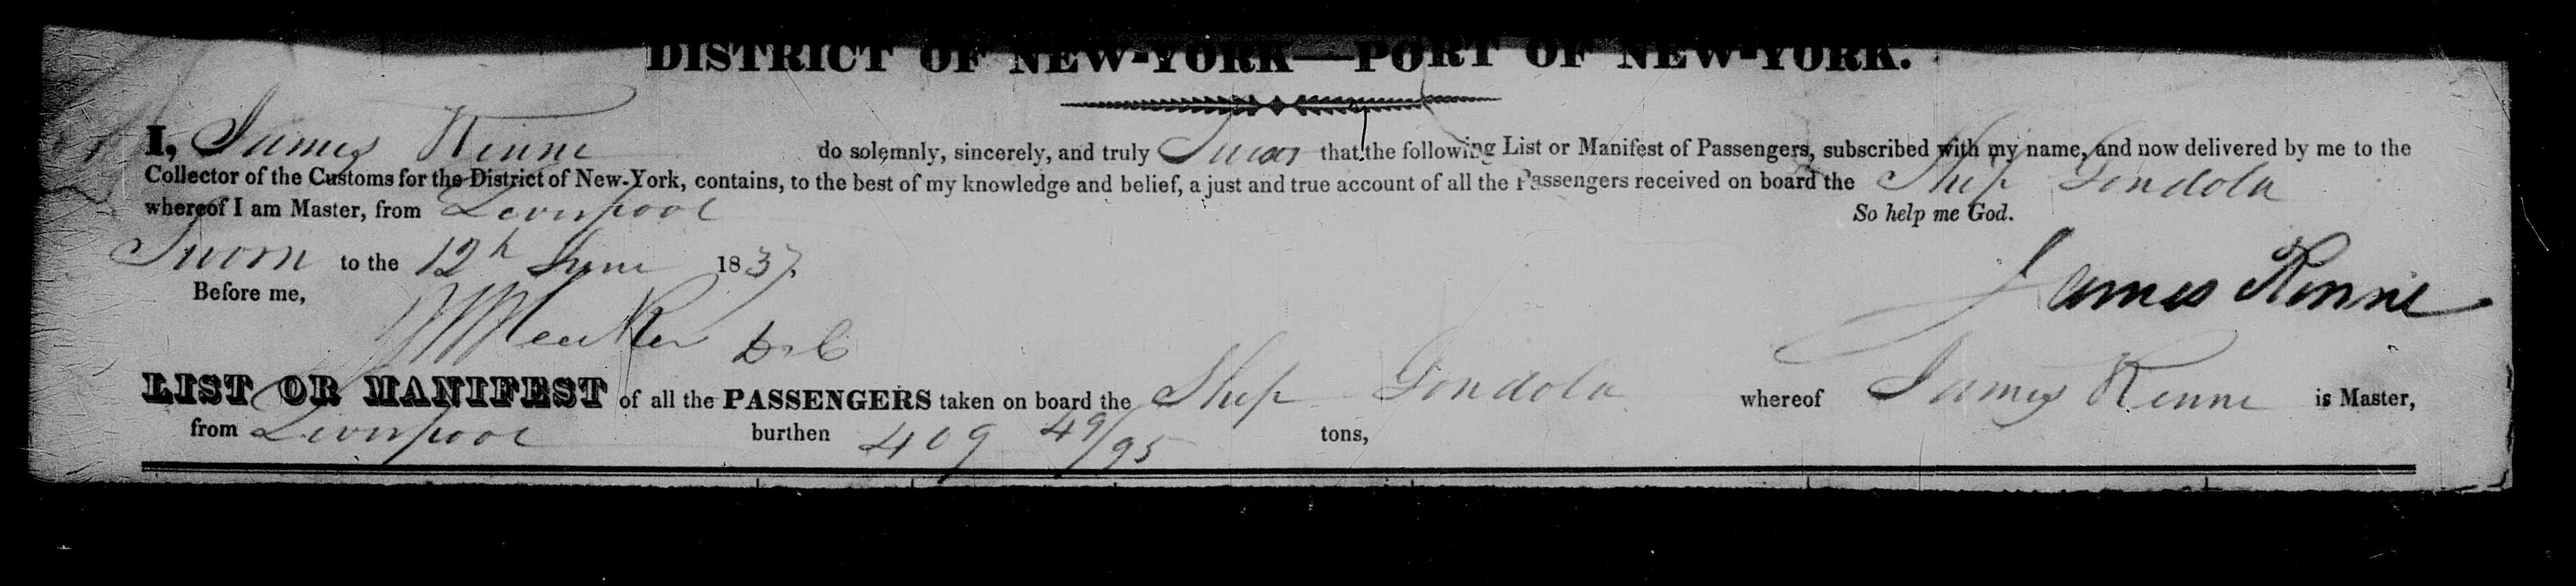 DISTRICT OF NEW-YORK—PORT OF NEW-YORK.
I, James Renne do solemnly, sincerely, and truly Swear that the following List or Manifest of Passengers, subscribed with my name, and now delivered by me to the
Collector of the Customs for the District of New-York, contains, to the best of my knowledge and belief, a just and true account of all the Passengers received on board the Ship Gondola
whereof I am Master, from Liverpool So help me God.
Sworn to the 12th June 1837.
James Renne
Before me,
LIST OR MANIFEST of all the PASSENGERS taken on board the Ship Gondola whereof James Renne is Master,
from Liverpool burthen 409 49/95 tons,